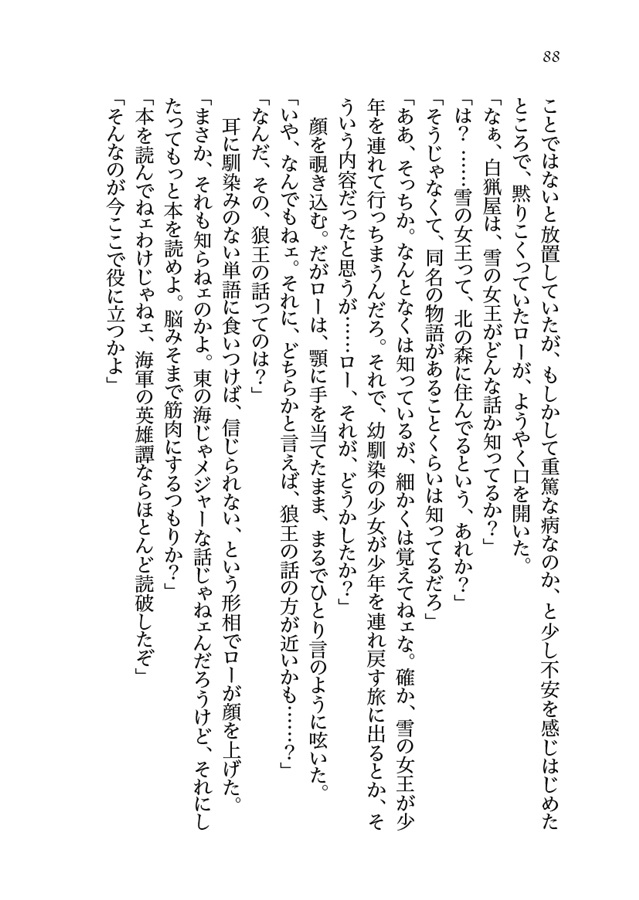 88
ことではないと放置していたが、もしかして重篤な病なのか、と少し不安を感じはじめた
ところで、黙りこくっていたローが、ようやく口を開いた。
「なぁ、白猟屋は、雪の女王がどんな話か知ってるか？」
「は？……雪の女王って、北の森に住んでるという、あれか？」
「そうじゃなくて、同名の物語があることくらいは知ってるだろ」
「ああ、そっちか。なんとなくは知っているが、細かくは覚えてねェな。確か、雪の女王が少
年を連れて行っちまうんだろ。それで、幼馴染の少女が少年を連れ戻す旅に出るとか、そ
ういう内容だったと思うが……ロー、それが、どうかしたか？」
顔を覗き込む。だがローは、顎に手を当てたまま、まるでひとり言のように呟いた。
「いや、なんでもねェ。それに、どちらかと言えば、狼王の話の方が近いかも……？」
「なんだ、その、狼王の話ってのは？」
耳に馴染みのない単語に食いつけば、信じられない、という形相でローが顔を上げた。
「まさか、それも知らねェのかよ。東の海じゃメジャーな話じゃねェんだろうけど、それにし
たってもっと本を読めよ。脳みそまで筋肉にするつもりか？」
「本を読んでねェわけじゃねェ、海軍の英雄譚ならほとんど読破したぞ」
「そんなのが今ここで役に立つかよ」